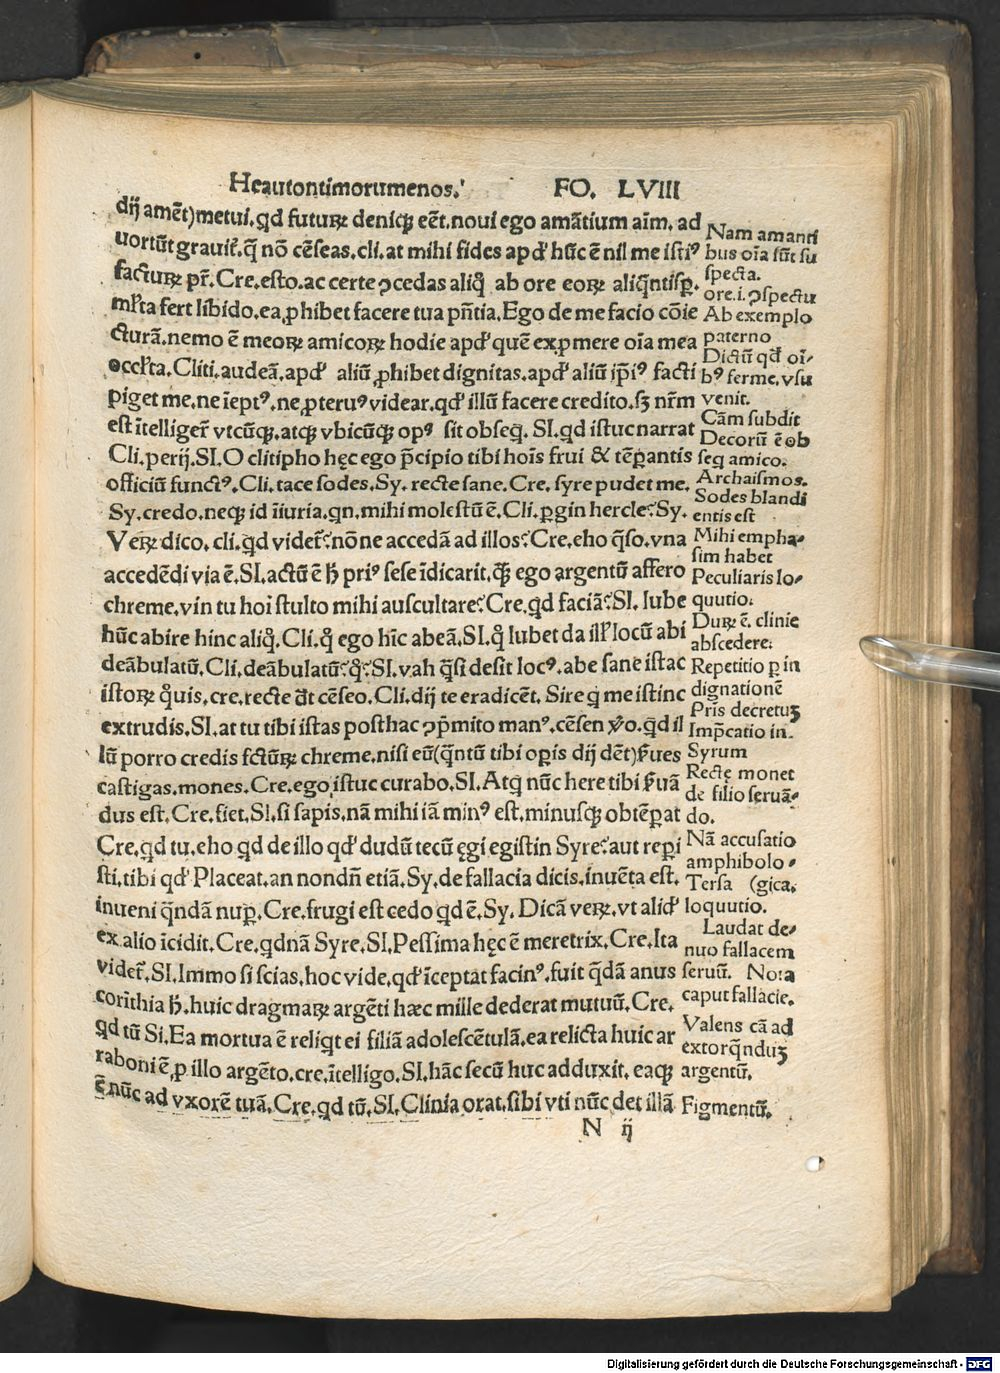 Heautontimorumenos. FO. LVIII
dij amēt) metui. qd futurꝝ deniqꝫ eēt. noui ego amātium aīm. ad
uortūt grauiť. q̄ nō cēseas. cli. at mihi fides apď hūc ē nīl me istiꝰ
facturꝝ pr̄. Cre. esto. ac certe ꝯcedas aliq̊ ab ore eorꝝ aliq̄ntisꝑ.
ml̄ta fert libido. ea ꝓhibet facere tua pn̄tia. Ego de me facio cōie
cturā. nemo ē meorꝝ amicorꝝ hodie apď quē exꝓmere oīa mea
occl̄ta. Cliti. audeā. apď aliū ꝓhibet dignitas. apď aliū ip̄iꝰ facti
piget me. ne īeptꝰ. ne ꝓteruꝰ videar. qď illū facere credito. sꝫ nr̄m
est ītelligeř vtcūqꝫ. atqꝫ vbicūqꝫ opꝰ sit obseq. SI. qd istuc narrat
Cli. perij. SI. O clitipho hęc ego p̄cipio tibi hoīs frui & tēꝑantis
officiū functꝰ. Cli. tace sodes. Sy. recte sane. Cre. syre pudet me.
Sy. credo. neqꝫ id īiuria. qn. mihi molestū ē. Cli. ꝑgin hercle? Sy.
Verꝝ dico. cli. qd videť? nōne accedā ad illos? Cre. eho q̄so. vna
accedēdi via ē. SI. actū ē ħ priꝰ sese īdicarit. q̄ꝫ ego argentū affero
chreme. vin tu hoī stulto mihi auscultare? Cre. qd faciā? SI. Iube
hūc abire hinc aliq̊. Cli. q̊ ego hīc abeā. SI. q̊ lubet da ill̄ locū abi
deābulatū. Cli. deābulatū? q̊? SI. vah q̄si desit locꝰ. abe sane istac
istorꝝ q̊uis. cre. recte dt̄ cēseo. Cli. dij te eradicēt. Sire q me istinc
extrudis. SI. at tu tibi istas posthac ꝯp̄mito manꝰ. cēsen v̊o. qd il
lū porro credis fctūrꝝ chreme. nisi eū (q̄ntū tibi opis dij dēt) ẜues
castigas. mones. Cre. ego istuc curabo. SI. Atq nūc here tibi ẜuā
dus est. Cre. fiet. SI. si sapis. nā mihi iā minꝰ est. minusqꝫ obtēꝑat
Cre. qd tu. eho qd de illo qď dudū tecū ęgi egistin Syre? aut reꝑi
sti. tibi qď Placeat. an nondn̄ etiā. Sy. de fallacia dicis. inuēta est.
inueni q̄ndā nuꝑ. Cre. frugi est cedo qd ē. Sy. Dicā verꝝ. vt aliď
ex alio īcidit. Cre. qdnā Syre. SI. Pessima hęc ē meretrix. Cre. Ita
videť. SI. Immo si scias. hoc vide. qď īceptat facinꝰ. fuit q̄dā anus
corīthia ħ. huic dragmaꝝ argēti hæc mille dederat mutuū. Cre.
qd tū Si. Ea mortua ē reliqt ei filiā adolescētulā. ea relicta huic ar
raboni ē ꝓ illo argēto. cre. ītelligo. SI. hāc secū huc adduxit. eaqꝫ
ē nūc ad vxorē tuā. Cre. qd tū. SI. Clinia orat. sibi vti nūc det illā
N ij
Nam amanti
bus oīa sūt su
specta.
ore. i. ꝯspectu
Ab exemplo
paterno
Dictū qď oī-
bꝰ ferme. vsu
venit.
Cām subdit
Decorū ē ob
seq amico.
Archaismos.
Sodes blandi
entis est
Mihi empha-
sim habet
Peculiaris lo-
quutio.
Durꝝ ē. clinie
abscedere.
Repetitio ꝑ in
dignationē
Pris decretuꝫ
Imp̄catio in.
Syrum
Recte monet
de filio seruā-
do.
Nā accusatio
amphibolo-
Tersa (gica.
loquutio.
Laudat de-
nuo fallacem
seruū. Nota
caput fallacie.
Valens cā ad
extorq̄nduꝫ
argentū.
Figmentū.
Digitalisierung gefördert durch die Deutsche Forschungsgemeinschaft - DFG